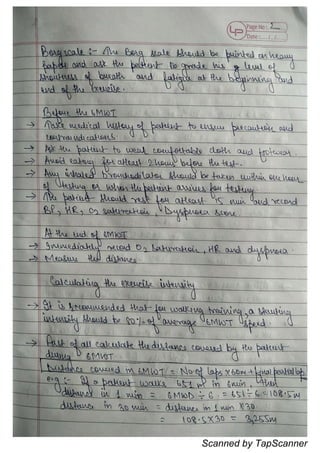 LP Page No: 2
Date: / /
Borg scale :- The Borg scale should be printed on heavy
paper and ask the patient to grade his level of
shortness of breath and fatigue at the beginning and
end of the exercise.
Before the 6MWT
→ Take medical history of patient to ensure precaution and
contraindications.
→ Ask the patient to wear comfortable cloth and footwear.
→ Avoid eating for atleast 2 hours before the test.
→ Any inhaled bronchodilator should be taken within one hour
of testing or when the patient arrives for testing
→ The patient should rest for atleast 15 min and record
BP, HR, O2 saturation, Dyspnoea score.
At the end of 6MWT
→ Immediately record O2 saturation, HR and dyspnoea
→ Measure the distance
Calculating the exercise intensity
→ It is recommended that for walking training, a starting
intensity should be 80% of average 6MWT speed.
→ First of all calculate the distance covered by the patient
during 6MWT
Distance covered in 6MWT = No of laps x 60m + final partial lap
e.g :- If a patient walks 651 m in 6min. then
distance in 1 min = 6MWD ÷ 6 = 651 ÷ 6 = 108.5m
distance in 30 min = distance in 1 min X 30
= 108.5 X 30 = 3,255m
Scanned by TapScanner